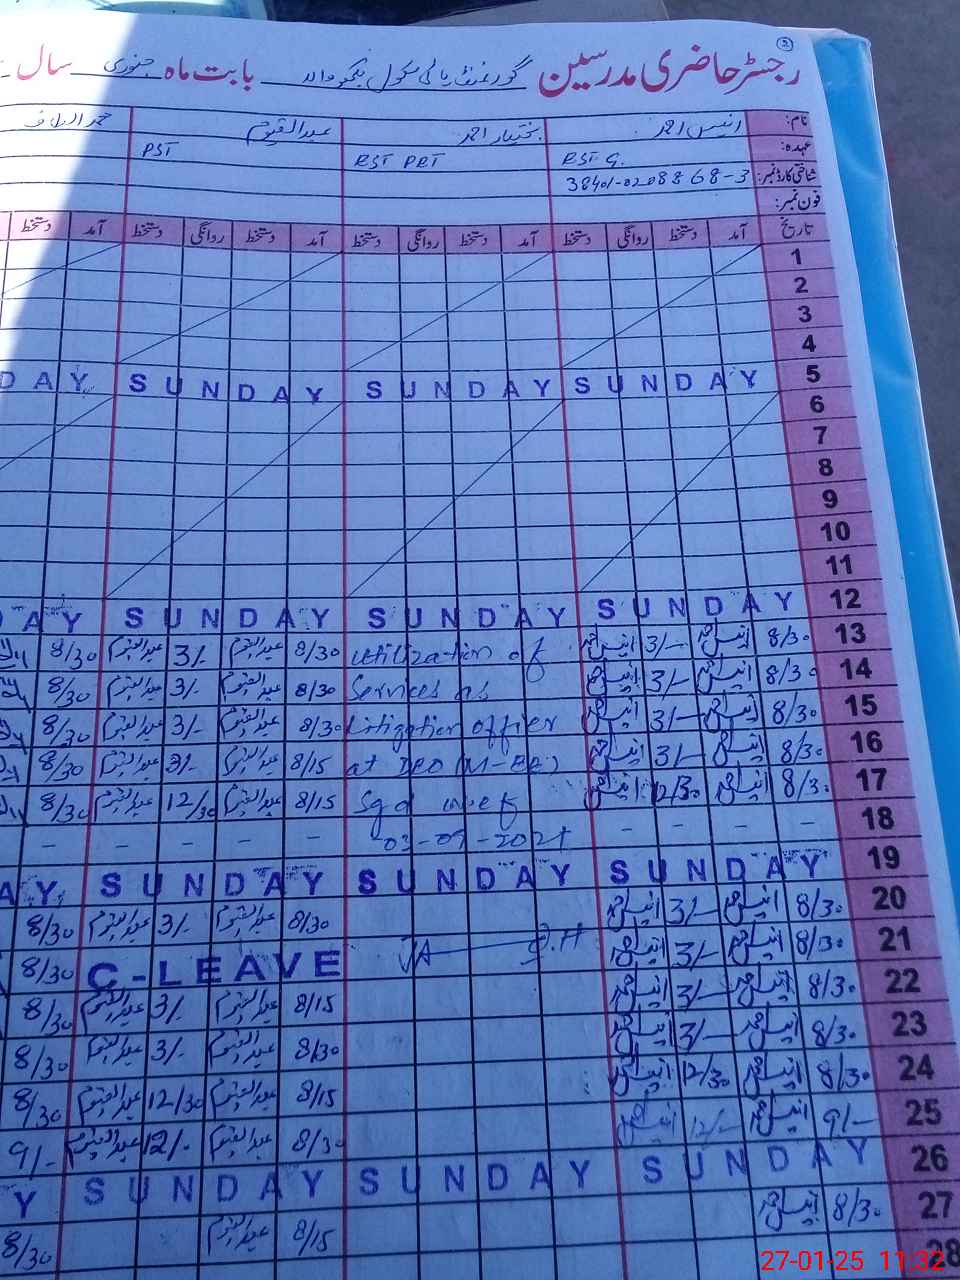 رجسٹر حاضری مدرسین گورنمنٹ ہائی سکول بابت ماہ جنوری سال
نام: انیس احمد بختیار احمد عبدالقیوم
عہدہ: EST G. EST PET PST
شناختی کارڈ نمبر:
فون نمبر:
تاریخ آمد دستخط روانگی دستخط آمد دستخط روانگی دستخط آمد دستخط روانگی دستخط آمد دستخط
1
2
3
4
5 SUNDAY SUNDAY SUNDAY DAY
6
7
8
9
10
11
12 SUNDAY SUNDAY SUNDAY DAY
13 8/30 انیس احمد 3/- انیس احمد utilization of 8/30 عبدالقیوم 3/- عبدالقیوم 8/30
14 8/30 انیس احمد 3/- انیس احمد Services as 8/30 عبدالقیوم 3/- عبدالقیوم 8/30
15 8/30 انیس احمد 3/- انیس احمد Litigation officer 8/30 عبدالقیوم 3/- عبدالقیوم 8/30
16 8/30 انیس احمد 3/- انیس احمد at DEO (M-EE) 8/15 عبدالقیوم 3/- عبدالقیوم 8/30
17 8/30 انیس احمد 12/30 انیس احمد Sgd w.e.f 8/15 عبدالقیوم 12/30 عبدالقیوم 8/30
18 - - - - - - - - -
19 SUNDAY SUNDAY SUNDAY AY
20 8/30 انیس احمد 3/- انیس احمد 8/30 عبدالقیوم 3/- عبدالقیوم 8/30
21 8/30 انیس احمد 3/- انیس احمد C-LEAVE 8/30
22 8/30 انیس احمد 3/- انیس احمد 8/15 عبدالقیوم 3/- عبدالقیوم 8/30
23 8/30 انیس احمد 3/- انیس احمد 8/30 عبدالقیوم 3/- عبدالقیوم 8/30
24 8/30 انیس احمد 12/30 انیس احمد 8/15 عبدالقیوم 12/30 عبدالقیوم 8/30
25 9/- انیس احمد 12/- انیس احمد 8/30 عبدالقیوم 12/- عبدالقیوم 9/-
26 SUNDAY SUNDAY SUNDAY Y
27 8/30 انیس احمد 8/15 عبدالقیوم 8/30
28
27-01-25 11:32